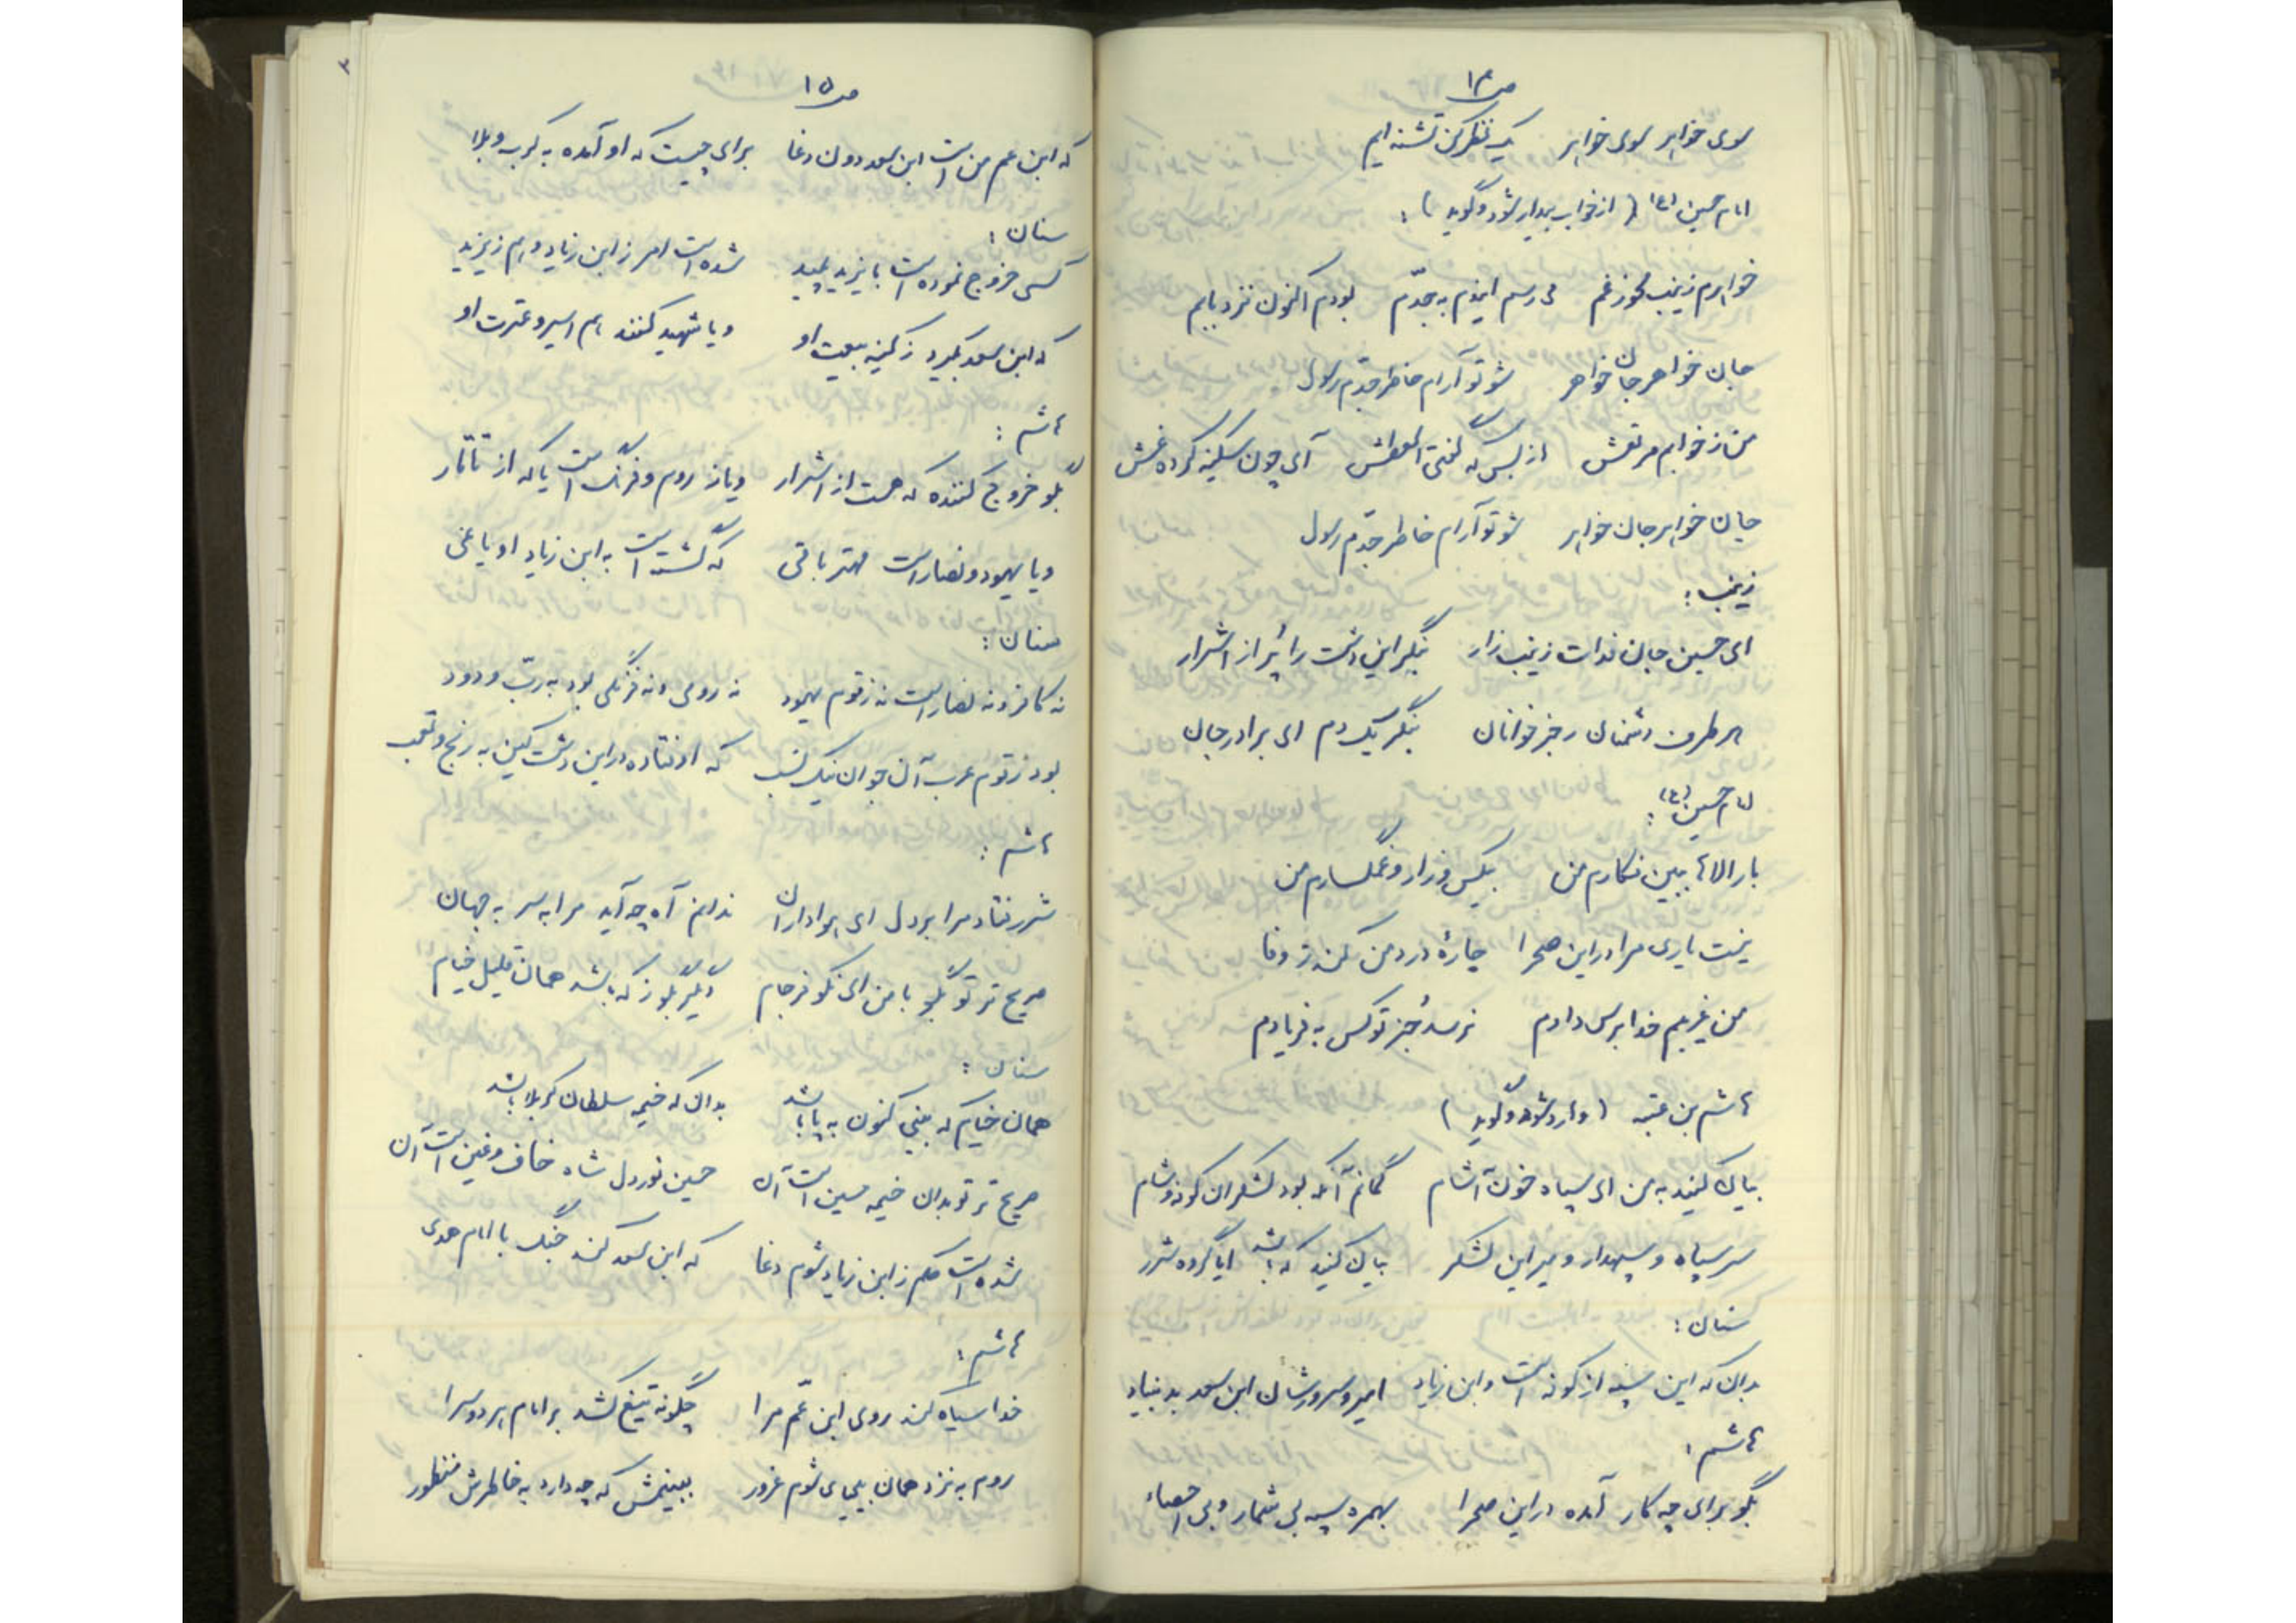 ص ۱۴
سوی خواهر سوی خواهر یک نظر کن تشنه ایم
امام حسین (ع) (از خواب بیدار شود و گوید) :
خواهرم زینب مخور غم می رسم ایندم به جدّم بودم اکنون نزد بابم
جان خواهر جان خواهر شو تو آرام خاطر جدّم رسول
من ز خوابم مرتعش از بس که گفتی العطش آی چون سکینه کرده غش
جان خواهر جان خواهر شو تو آرام خاطر جدّم رسول
زینب :
ای حسین جان فدات زینب زار بنگر این دشت را پُر از اشرار
هر طرف دشمنان رجز خوانان بنگر یک دم ای برادر جان
امام حسین (ع) :
بار الاها ببین نگارم من بیکس و زار و غمگسارم من
نیست یاری مرا در این صحرا چارهٔ درد من کن ز وفا
من غریبم خدا برس دادم نرسد جُز تو کس به فریادم
هاشم بن عتبه (وارد شود و گوید)
بیان کنید به من ای سپاه خون آشام گمانم آنکه بود لشکران کوفه و شام
سر سپاه و سپهدار و میر این لشکر بیان کنید که باشد ایا گروه شرر
سنان :
بدان که این سپه از کوفه است و ابن زیاد امیر و سرورشان ابن سعد بد بنیاد
هاشم :
بگو برای چه کار آمده در این صحرا بهمره سپه بی شمار و بی احصاء
ص ۱۵
که ابن عم من است ابن سعد دون دغا برای چیست که او آمده به کرب و بلا
سنان :
کسی خروج نموده است با یزید پلید شده است امر ز ابن زیاد و هم ز یزید
که ابن سعد بگیرد ز کینه بیعت او و یا شهید کنند هم اسیر و عترت او
هاشم :
بگو خروج کننده که هست از اشرار و یا ز روم و فرنگ است یا که از تاتار
و یا یهود و نصار است مهتر باقی که گشته است به ابن زیاد او یاغی
سنان :
نه کافر و نه نصار است نه ز قوم یهود نه رومی و نه فرنگی بود به ربّ ودود
بود ز قوم عرب آن جوان نیک نسب که اوفتاده در این دشت کین به رنج و تعب
هاشم :
شرر فتاد مرا بر دل ای هواداران ندانم آه چه آید مرا به سر به جهان
صریح تر تو بگو با من ای نکو فرجام دیگر بگو ز که باشد همان قلیل خیام
سنان :
همان خیام که بینی کنون به پا باشد بدان که خیمه سلطان کربلا باشد
صریح تر تو بدان خیمه حسین است آن حسین نور دل شاه خافقین است آن
شده است حکم ز ابن زیاد شوم دغا که ابن سعد کند جنگ با امام هدی
هاشم :
خدا سیاه کند روی ابن عمّ مرا چگونه تیغ کشد بر امام هر دو سرا
روم به نزد همان بیحیای شوم غرور ببینمش که چه دارد به خاطرش منظور